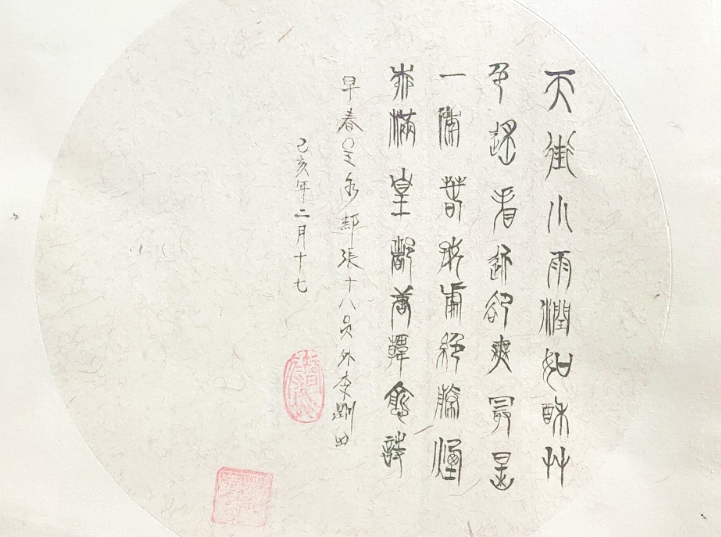 天街小雨潤如酥艸
色遙看近卻無最是
一年春好處絕勝煙
柳滿皇都唐韓愈詩
早春呈水部張十八员外李
己亥年二月十七